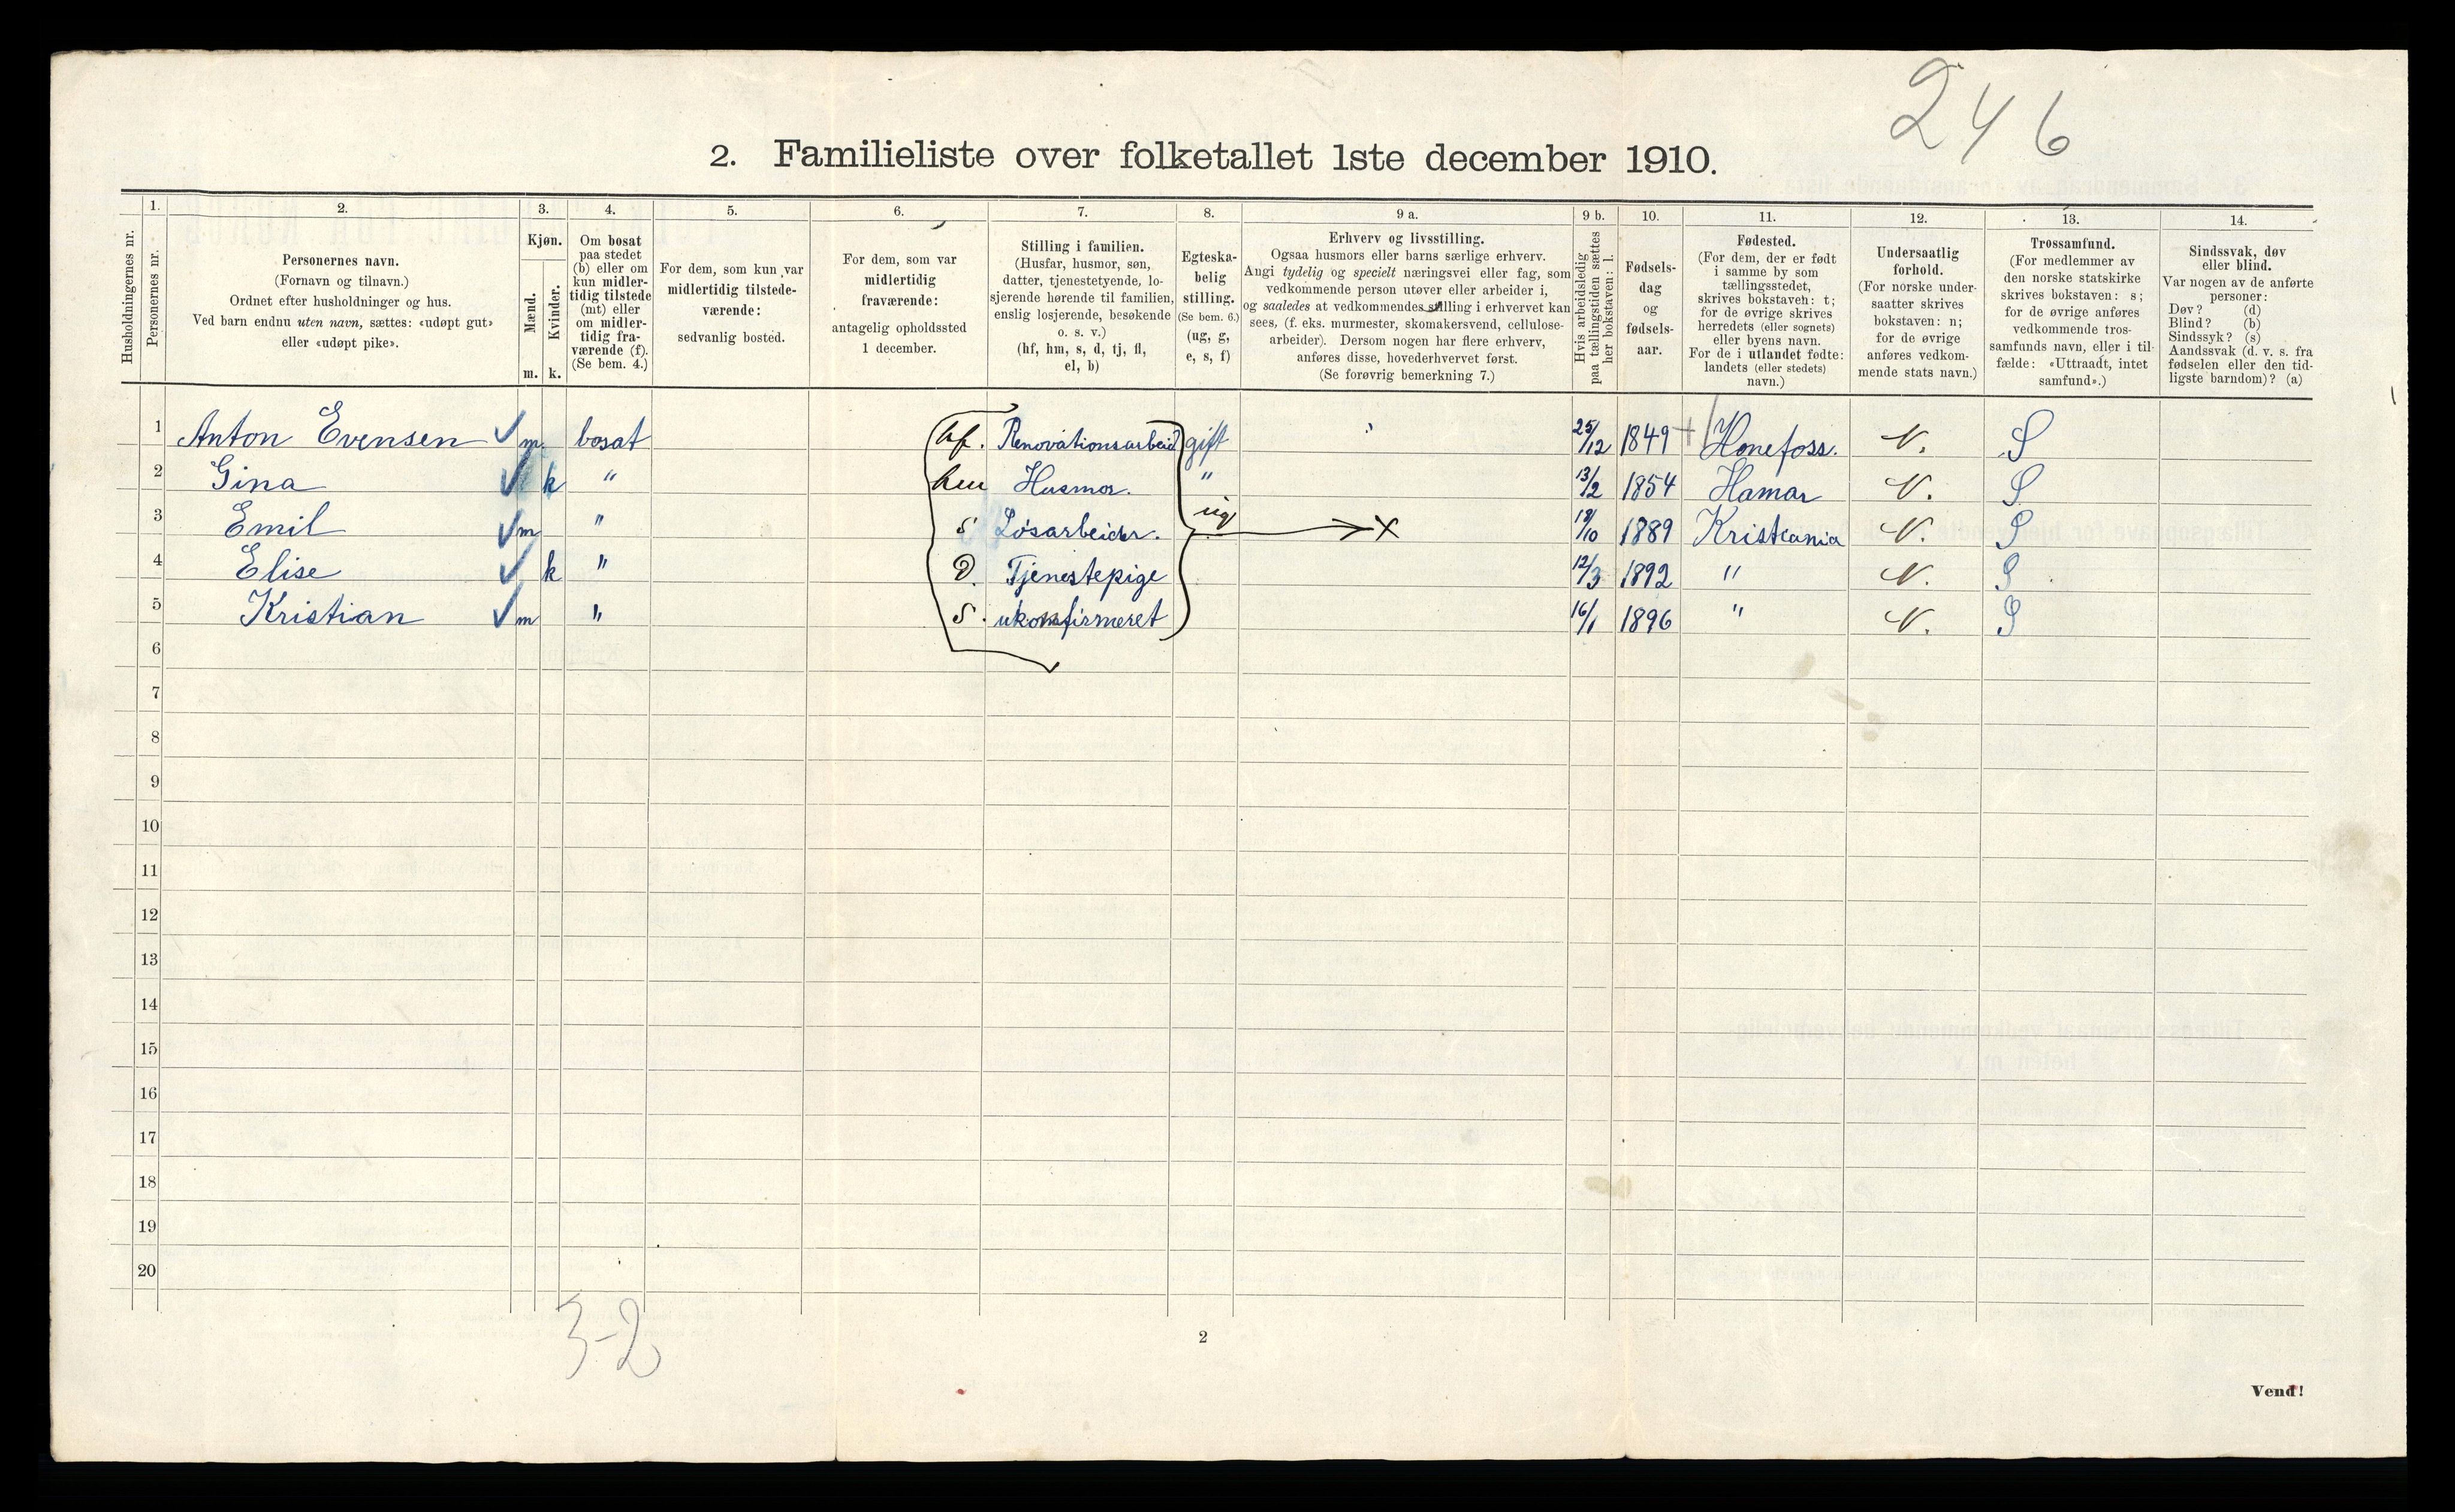 246
2. Familieliste over folketallet 1ste december 1910.
Husholdningernes nr.
1.
Personernes nr.
2.
Personernes navn.
(Fornavn og tilnavn.)
Ordnet efter husholdninger og hus.
Ved barn endnu uten navn, sættes: «udøpt gut»
eller «udøpt pike».
3.
Kjøn.
Mænd.
m.
Kvinder.
k.
4.
Om bosat
paa stedet
(b) eller om
kun midler-
tidig tilstede
(mt) eller
om midler-
tidig fra-
værende (f).
(Se bem. 4.)
5.
For dem, som kun var
midlertidig tilstede-
værende:
sedvanlig bosted.
6.
For dem, som var
midlertidig
fraværende:
antagelig opholdssted
1 december.
7.
Stilling i familien.
(Husfar, husmor, søn,
datter, tjenestetyende, lo-
sjerende hørende til familien,
enslig losjerende, besøkende
o. s. v.)
(hf, hm, s, d, tj, fl,
el, b)
8.
Egteska-
belig
stilling.
(Se bem. 6.)
(ug, g,
e, s, f)
9 a.
Erhverv og livsstilling.
Ogsaa husmors eller barns særlige erhverv.
Angi tydelig og specielt næringsvei eller fag, som
vedkommende person utøver eller arbeider i,
og saaledes at vedkommendes stilling i erhvervet kan
sees, (f. eks. murmester, skomakersvend, cellulose-
arbeider). Dersom nogen har flere erhverv,
anføres disse, hovederhvervet først.
(Se forøvrig bemerkning 7.)
9 b.
Hvis arbeidsledig
paa tællingstiden sættes
her bokstaven: l.
10.
Fødsels-
dag
og
fødsels-
aar.
11.
Fødested.
(For dem, der er født
i samme by som
tællingsstedet,
skrives bokstaven: t;
for de øvrige skrives
herredets (eller sognets)
eller byens navn.
For de i utlandet fødte:
landets (eller stedets)
navn.)
12.
Undersaatlig
forhold.
(For norske under-
saatter skrives
bokstaven: n;
for de øvrige
anføres vedkom-
mende stats navn.)
13.
Trossamfund.
(For medlemmer av
den norske statskirke
skrives bokstaven: s;
for de øvrige anføres
vedkommende tros-
samfunds navn, eller i til-
fælde: «Uttraadt, intet
samfund».)
14.
Sindssvak, døv
eller blind.
Var nogen av de anførte
personer:
Døv? (d)
Blind? (b)
Sindssyk? (s)
Aandssvak (d. v. s. fra
fødselen eller den tid-
ligste barndom)? (a)
1 Anton Evensen m. bosat hf. Renovationsarbeid gift " 25/12 1849 Honefoss. N. S
2 Gina k " hm Husmor. " 13/2 1854 Hamar N. S
3 Emil m " s Løsarbeider. ug X 18/10 1889 Kristiania N. S
4 Elise k " D. Tjenestepige 12/3 1892 " N. S
5 Kristian m " S. ukonfirmeret 16/1 1896 " N. S
6
7
8
9
10
11
12
13
14
15
16
17
18
19
20
3-2
2
Vend!